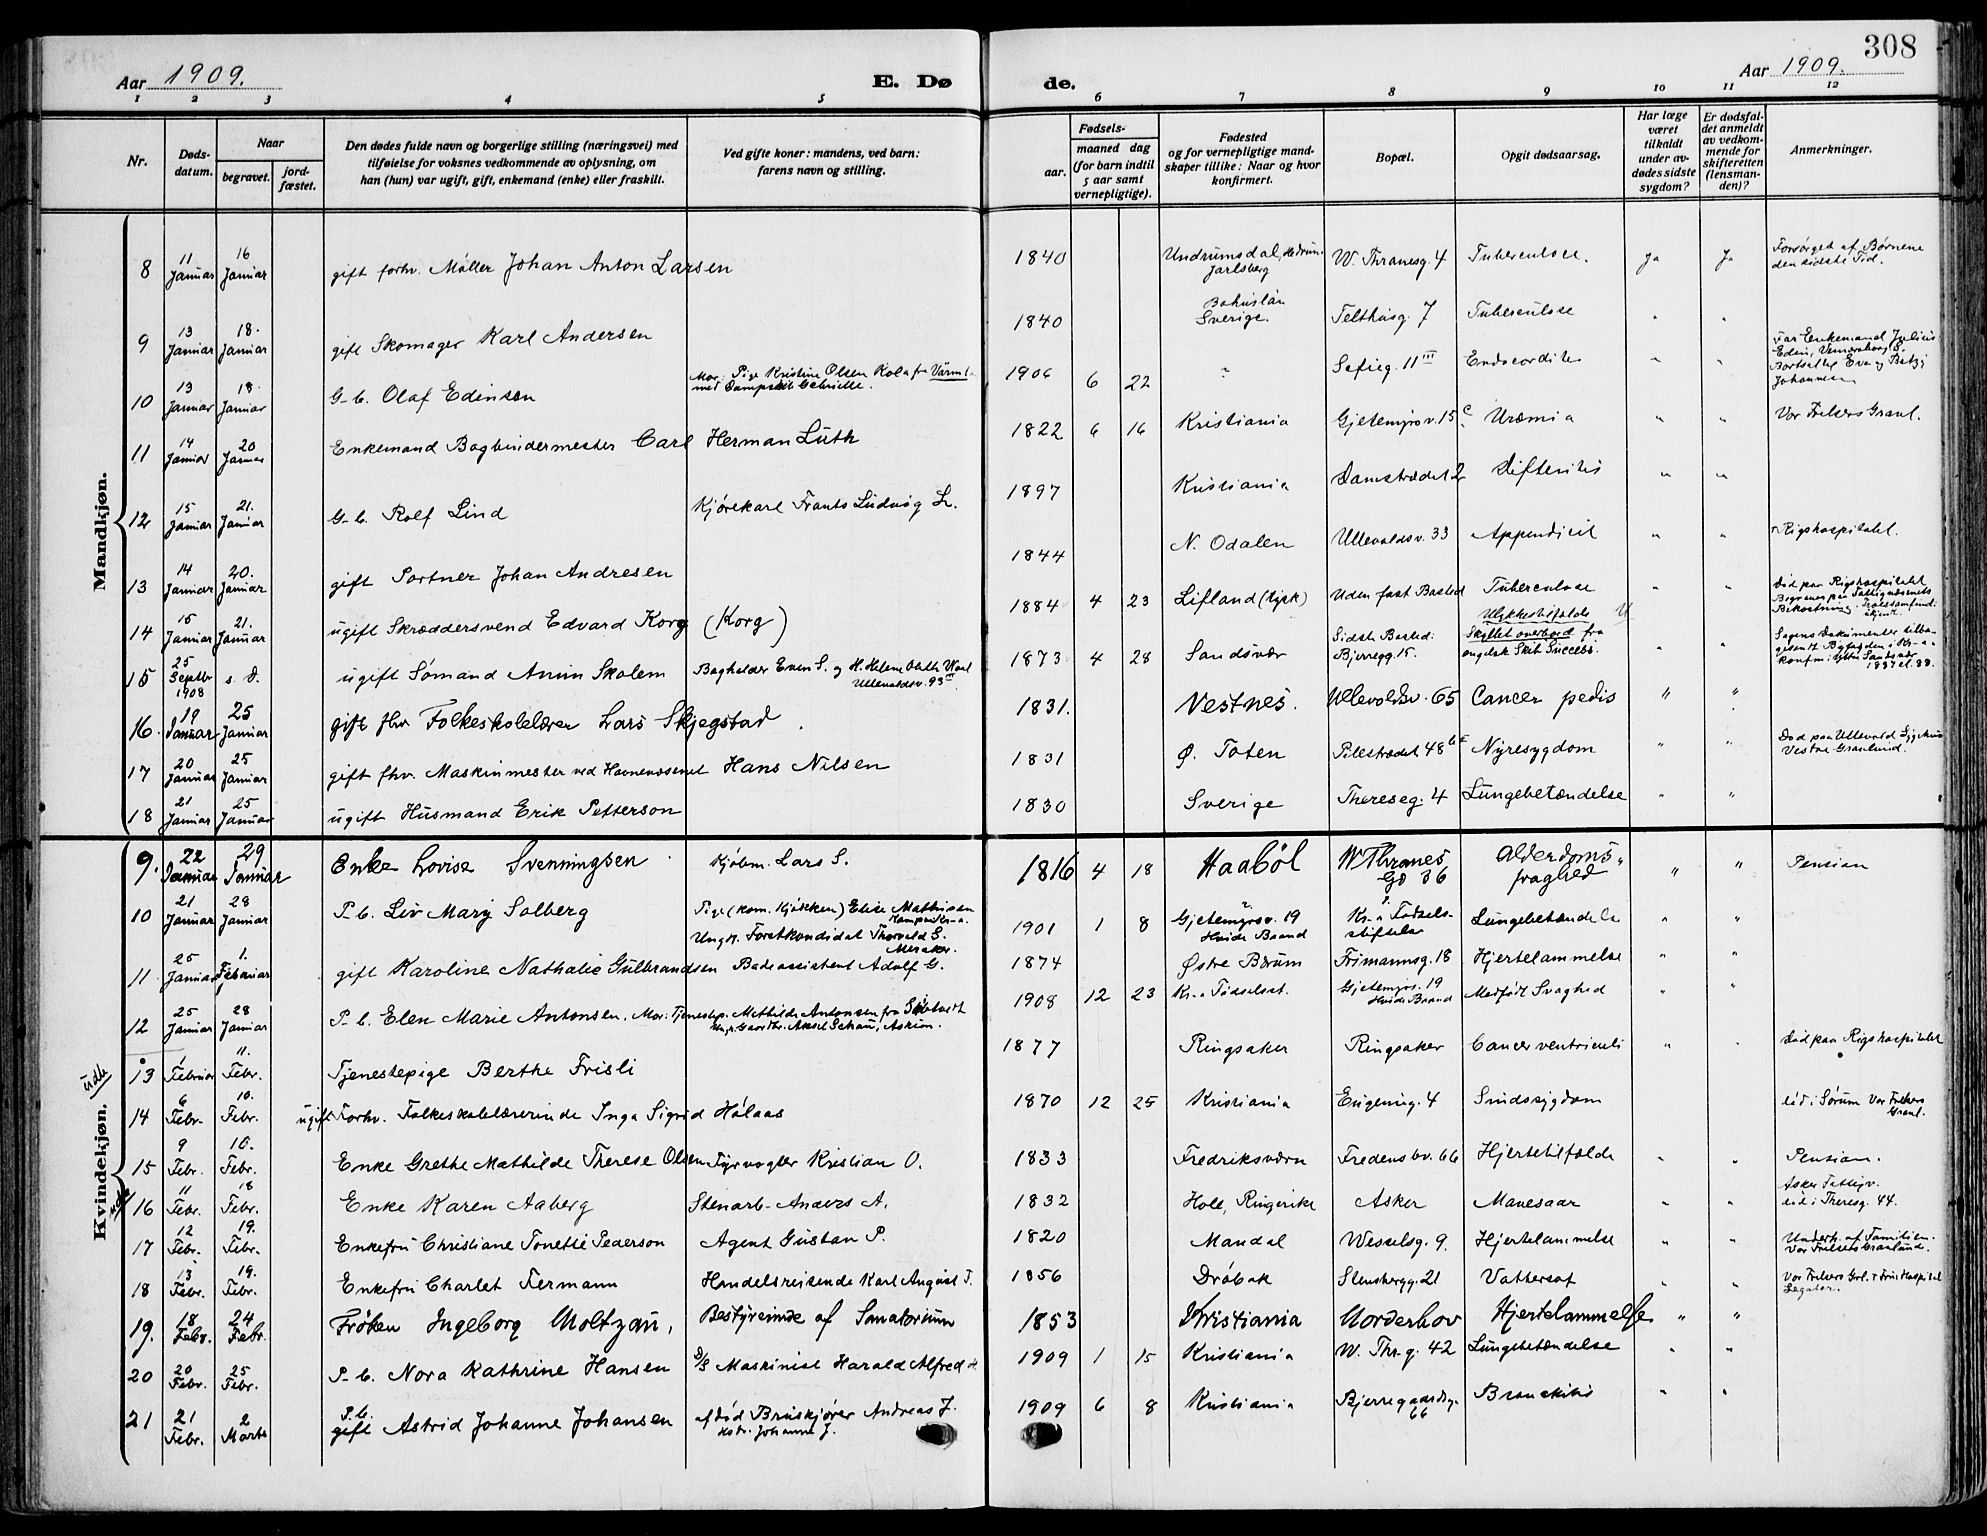 308
Aar 1909.
E. Dø
de.
Aar 1909.
1 2 3 4 5 6 7 8 9 10 11 12
Nr.
Døds-
datum.
Naar
begravet.
jord-
fæstet.
Den dødes fulde navn og borgerlige stilling (næringsvei) med
tilføielse for voksnes vedkommende av oplysning, om
han (hun) var ugift, gift, enkemand (enke) eller fraskilt.
Ved gifte koner: mandens, ved barn:
farens navn og stilling.
Fødsels-
aar.
maaned dag
(for barn indtil
5 aar samt
vernepligtige).
Fødested
og for vernepligtige mand-
skaper tillike: Naar og hvor
konfirmert.
Bopæl.
Opgit dødsaarsag.
Har læge
været
tilkaldt
under av-
dødes sidste
sygdom?
Er dødsfal-
det anmeldt
av vedkom-
mende for
skifteretten
(lensman-
den)?
Anmerkninger.
Mandkjøn.
8 11 Januar 16 Januar gift forhv. Møller Johan Anton Larsen 1840 Undrumsdal, Jarlsberg W. Thranesg. 4 Tuberculose. Ja Ja Forsørget af Børnene den sidste Tid.
9 13 Januar 18. Januar gift Skomager Karl Andersen 1840 Bohuslän Sverige. Telthusg. 7 Tuberculose " "
10 13 Januar 18. Januar G-b. Olaf Edinsen Mor: Pige Kristine Olsen Kola fra 1906 6 22 " Sofieg. 11 III Endocardite " " Far Enkemand Edin, Bortsatte Eva og Betzy Johannesen
11 14 Januar 20 Januar Enkemand Bogbindermester Carl Herman Lüth 1822 6 16 Kristiania Gjetemyrsv. 15 c. Uræmia " " Vor Frelsers Gravl.
12 15 Januar 21. Januar G-b. Rolf Lind Kjørekarl Frants Ludvig L. 1897 Kristiania Damstrædet 2 Difteritis " "
13 14 Januar 20. Januar gift Portner Johan Andresen 1844 N. Odalen Ullevoldsv. 33 Appendicit " " Rigshospitalet.
14 15 Januar 21. Januar ugift Skræddersvend Edvard Korg (Korg) 1884 4 23 Lifland (tysk) Uden fast Bosted Tuberculose " " Død paa Rigshospitalet Begraves paa Fattigvæsenets Bekostning.
15 25 Septbr 1908 s. d. ugift Sømand Anun Skolem Bogholder Even S. og H. Helene Ullevoldsv. 93 III. 1873 4 28 Sandsvær Sidste Bosted: Bjerregg. 15. Ulykkestilfælde Skyllet overbord fra engelsk Skib Success. " Sagens Dokumenter
16. 19 Januar 25 Januar gift fhv Folkeskolelærer Lars Skjegstad. 1831. Vestnes. Ullevoldsv. 65 Cancer pedis " "
17 20 Januar 25 Januar gift fhv. Maskinmester ved Havnevæsenet Hans Nilsen 1831 Ø. Toten Pilestrædet 48 Nyresygdom " " Død paa Ullevold Sygehus Vestre Gravlund.
18 21 Januar 25 Januar ugift Husmand Erik Petterson 1830 Sverige Thereseg. 4 Lungebetændelse " "
Kvindekjøn.
9. 22 Januar 29 Januar Enke Lovise Svenningsen Kjøbm. Lars S. 1816 4 18 Haabøl W Thranes Gd 36 Alderdoms- fraghed " " Pension
10 21 Januar 28 Januar P.b. Liv Mary Solberg Pige (kom. Kjøkken) Elise Mathisen Ungk. Forstkandidat Thorvald S. Meraker. 1901 1 8 Gjetemyrsv. 19 Hvide Baand Kr-a Fødsels- stiftelse Lungebetændelse " "
11. 25 Januar 1. Februar gift Karoline Nathalie Gulbrandsen Badeassistent Adolf G. 1874 Østre Bærum Frimannsg. 18 Hjertelammelse " "
12 25 Januar 28 Januar P.b. Elen Marie Antonsen. Mor: Tjenestep. Mathilde Antonsen fra 1908 12 23 Kr-a Fødselsst. Gjetemyrs. 19 Hvide Baand Medfødt Svaghed " "
ude
13 1 Februar 11. Febr. Tjenestepige Berthe Frisli 1877 Ringsaker Ringsaker Cancer ventriculi " " Død paa Rigshospitalet
14 6 Febr. 10. Febr. ugift Forhv. Folkeskolelærerinde Inga Sigrid Hølaas 1870 12 25 Kristiania Eugenieg. 4 Sindssygdom død i Sørum Vor Frelsers Gravl.
15 9 Febr. 10. Febr. Enke Grethe Mathilde Therese Olsen Fyrvogter Kristian O. 1833 Fredriksværn Fredensbv. 66 Hjertetilfælde " " Pension.
16 11 Febr. 18 Febr. Enke Karen Aaberg Stenarb- Anders A. 1832 Hole, Ringerike Asker Mavesaar " " Asker Fattigv. død i Theresg. 44.
17 12 Febr. 19. Febr. Enkefru Christiane Tonette Pederson Agent Gustav P. 1820 Mandal Wesselsg. 9. Hjertelammelse " " Underh. af Familien. Vor Frelsers Gravlund.
18 13 Febr. 19. Febr. Enkefru Charlot Fermann Handelsreisende Karl August F. 1856 Drøbak Stensbergg. 21 Vattersot " "
19. 18 Febr. 24 Febr. Frøken Ingeborg Moltzau, Bestyrerinde af Sanatorium 1853 Kristiania Norderhov Hjertelammelse " "
20 20 Febr. 25 Febr. P-b. Nora Kathrine Hansen D/S Maskinist Harald Alfred H 1909 1 15 Kristiania W. Thr-g. 42 Lungebetændelse " "
21 21 Febr. 2 Marts P.b. gift Astrid Johanne Johansen afdød Bruskjører Andreas J. Hstr. Johanne J. 1909 6 8 Kristiania Bjerregaardsg. 66 Bronchitis " "